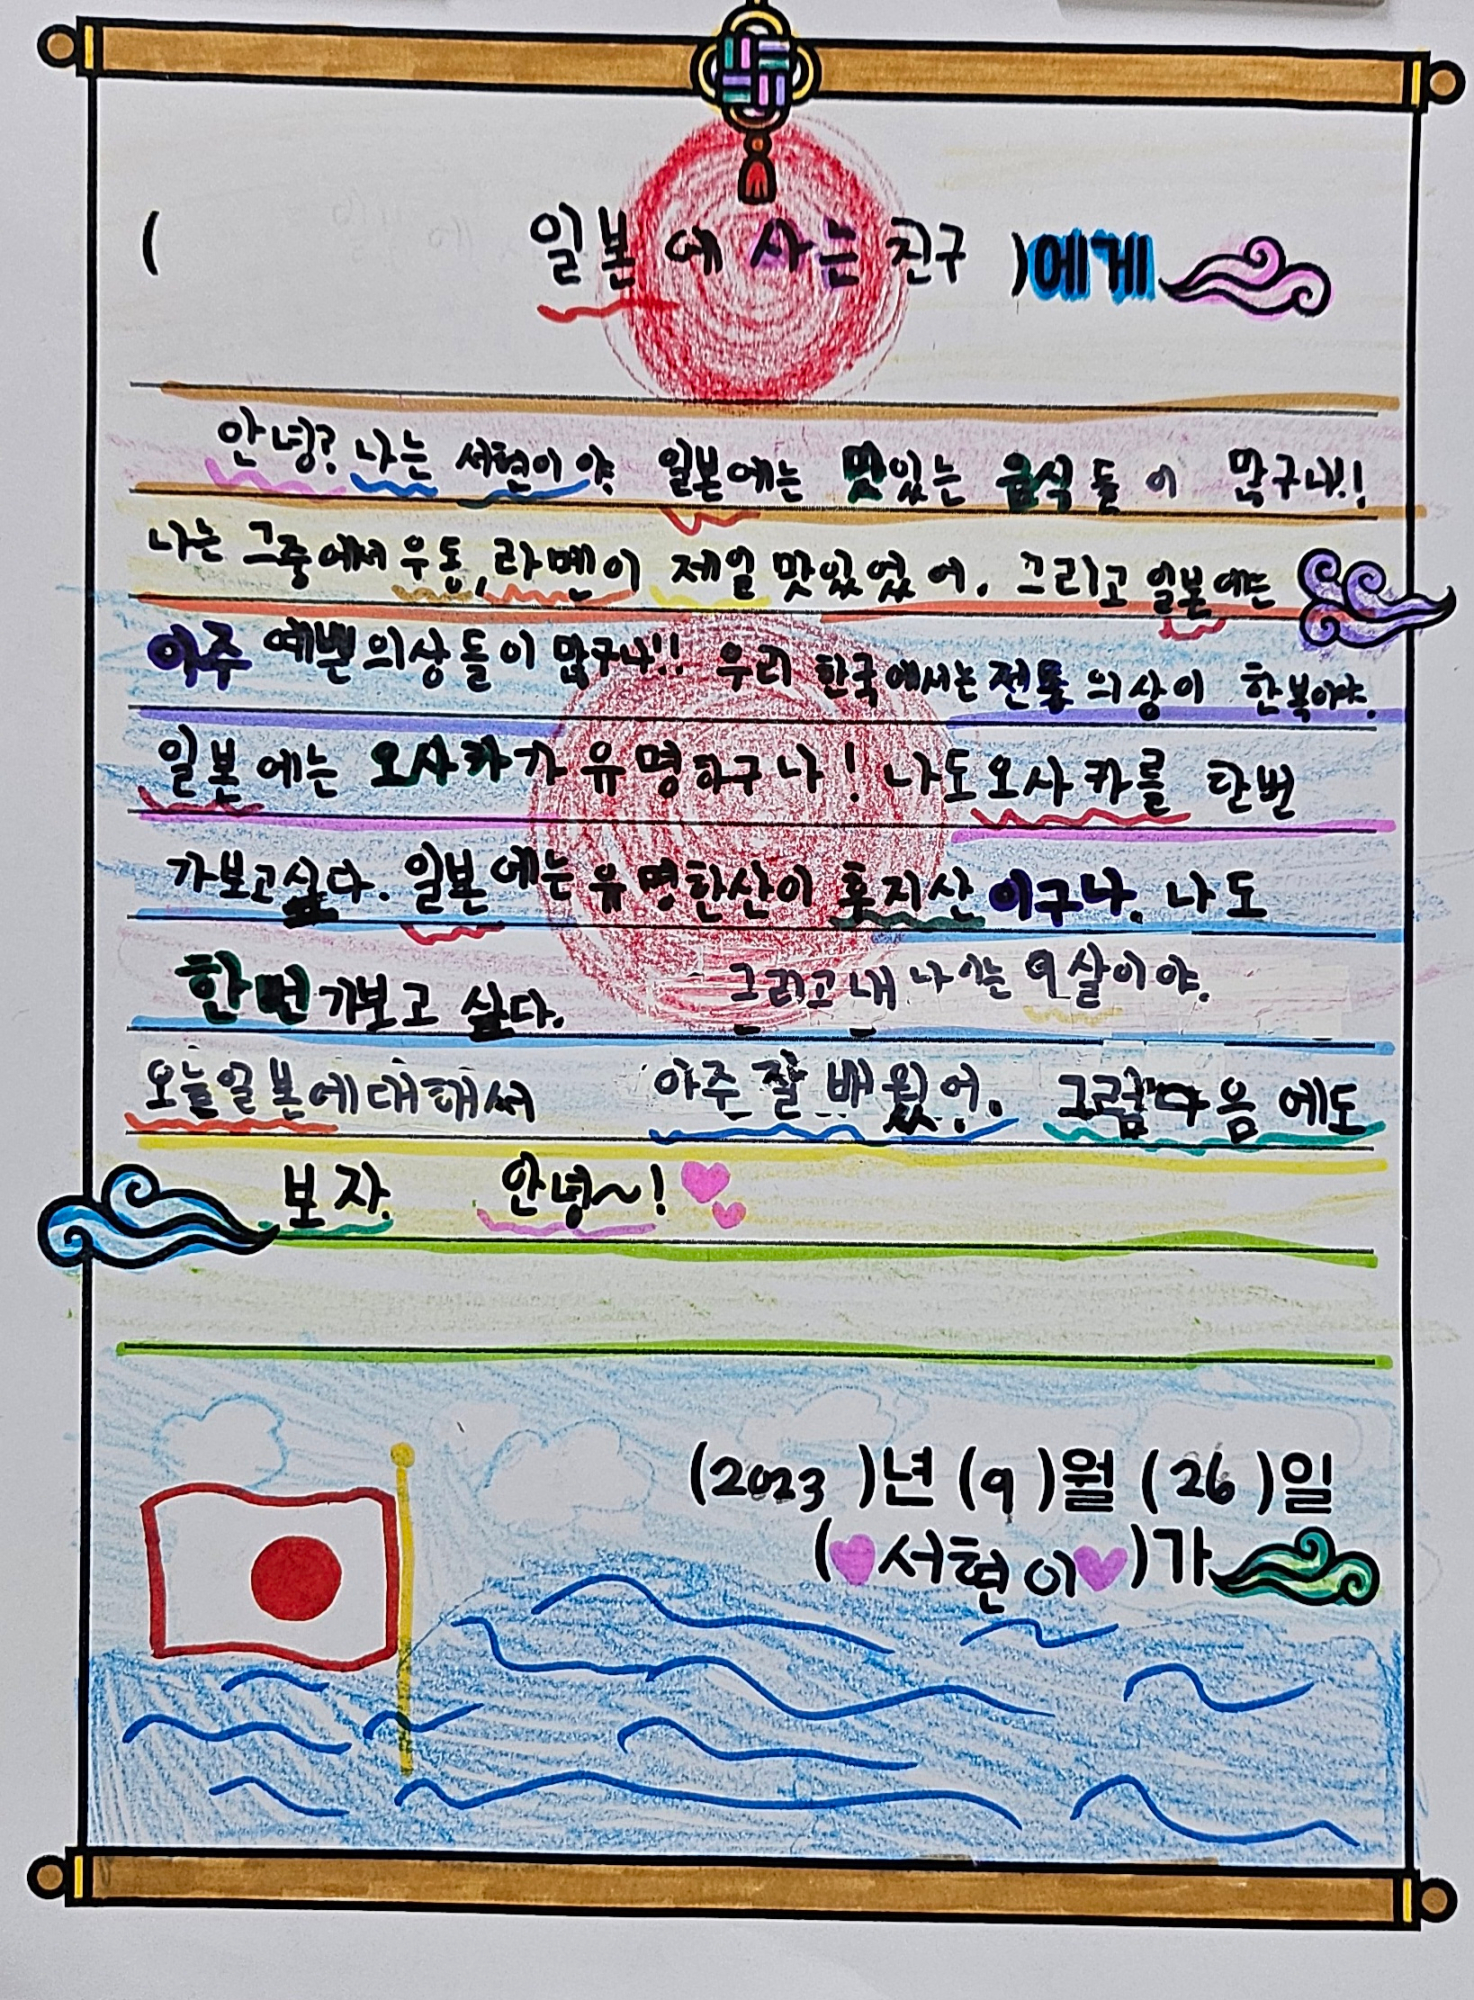 ( 일본에 사는 친구 )에게
안녕? 나는 서현이야 일본에는 맛있는 음식들이 많구나!!
나는 그중에서 우동, 라멘이 제일 맛있었어. 그리고 일본에는
아주 예쁜 의상들이 많구나!! 우리 한국에서는 전통 의상이 한복이야.
일본에는 오사카가 유명하구나! 나도 오사카를 한번
가보고싶다. 일본에는 유명한산이 후지산이구나. 나도
한번 가보고 싶다. 그리고 내 나이는 9살이야.
오늘 일본에 대해서 아주 잘 배웠어. 그럼 다음에도
보자. 안녕~!
(2023 )년 (9 )월 (26 )일
(서현이)가